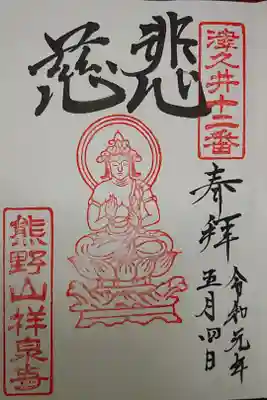 慈悲
津久井十二番
奉拝
令和元年
五月四日
熊野山祥泉寺